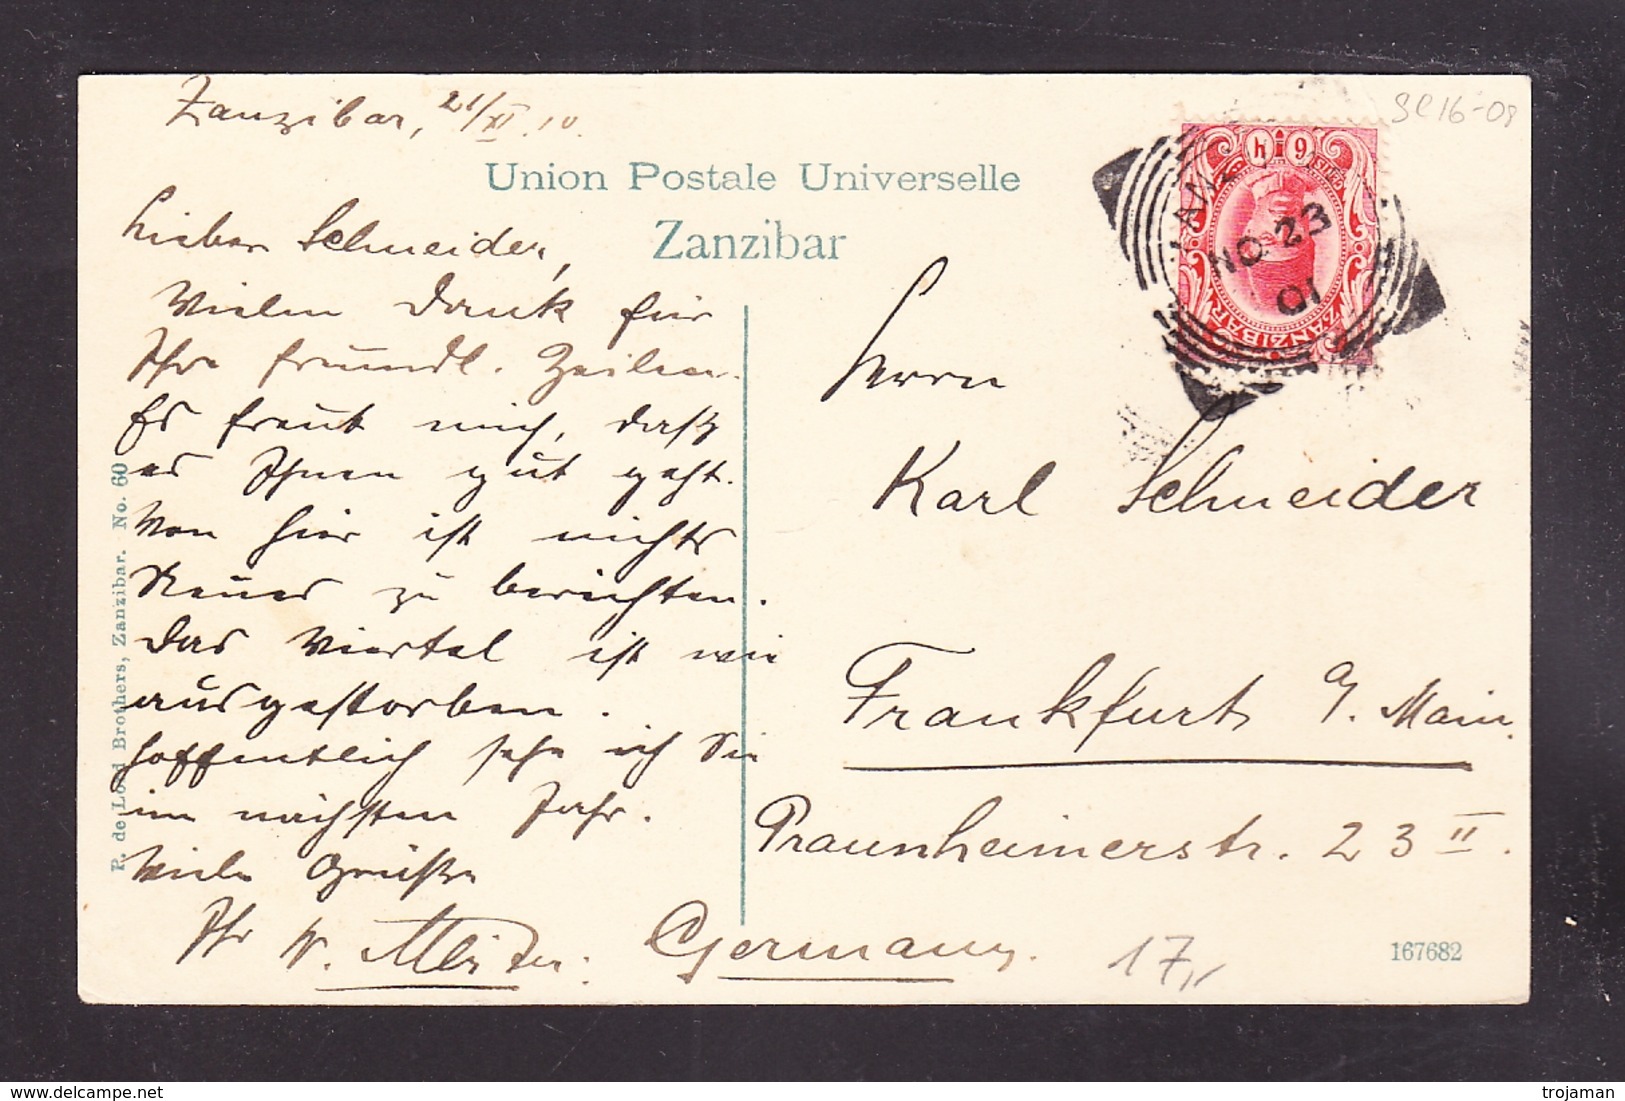 Zanzibar, 21/XI.10.
Union Postale Universelle
Zanzibar
Lieber Schneider,
Vielen Dank für
Ihre freundl. Zeilen.
Es freut mich, daß
es Ihnen gut geht.
Von hier ist nichts
Neues zu berichten.
Das Viertel ist wie
ausgestorben.
Hoffentlich sehe ich Sie
im nächsten Jahr.
Viele Grüße
Ihr W.
P. de Lord Brothers, Zanzibar. No. 60
SC16-08
ZANZIBAR
NO 23
01
Herrn
Karl Schneider
Frankfurt a/Main.
Praunheimerstr. 23 II.
Germany.
17,-
167682
trojaman